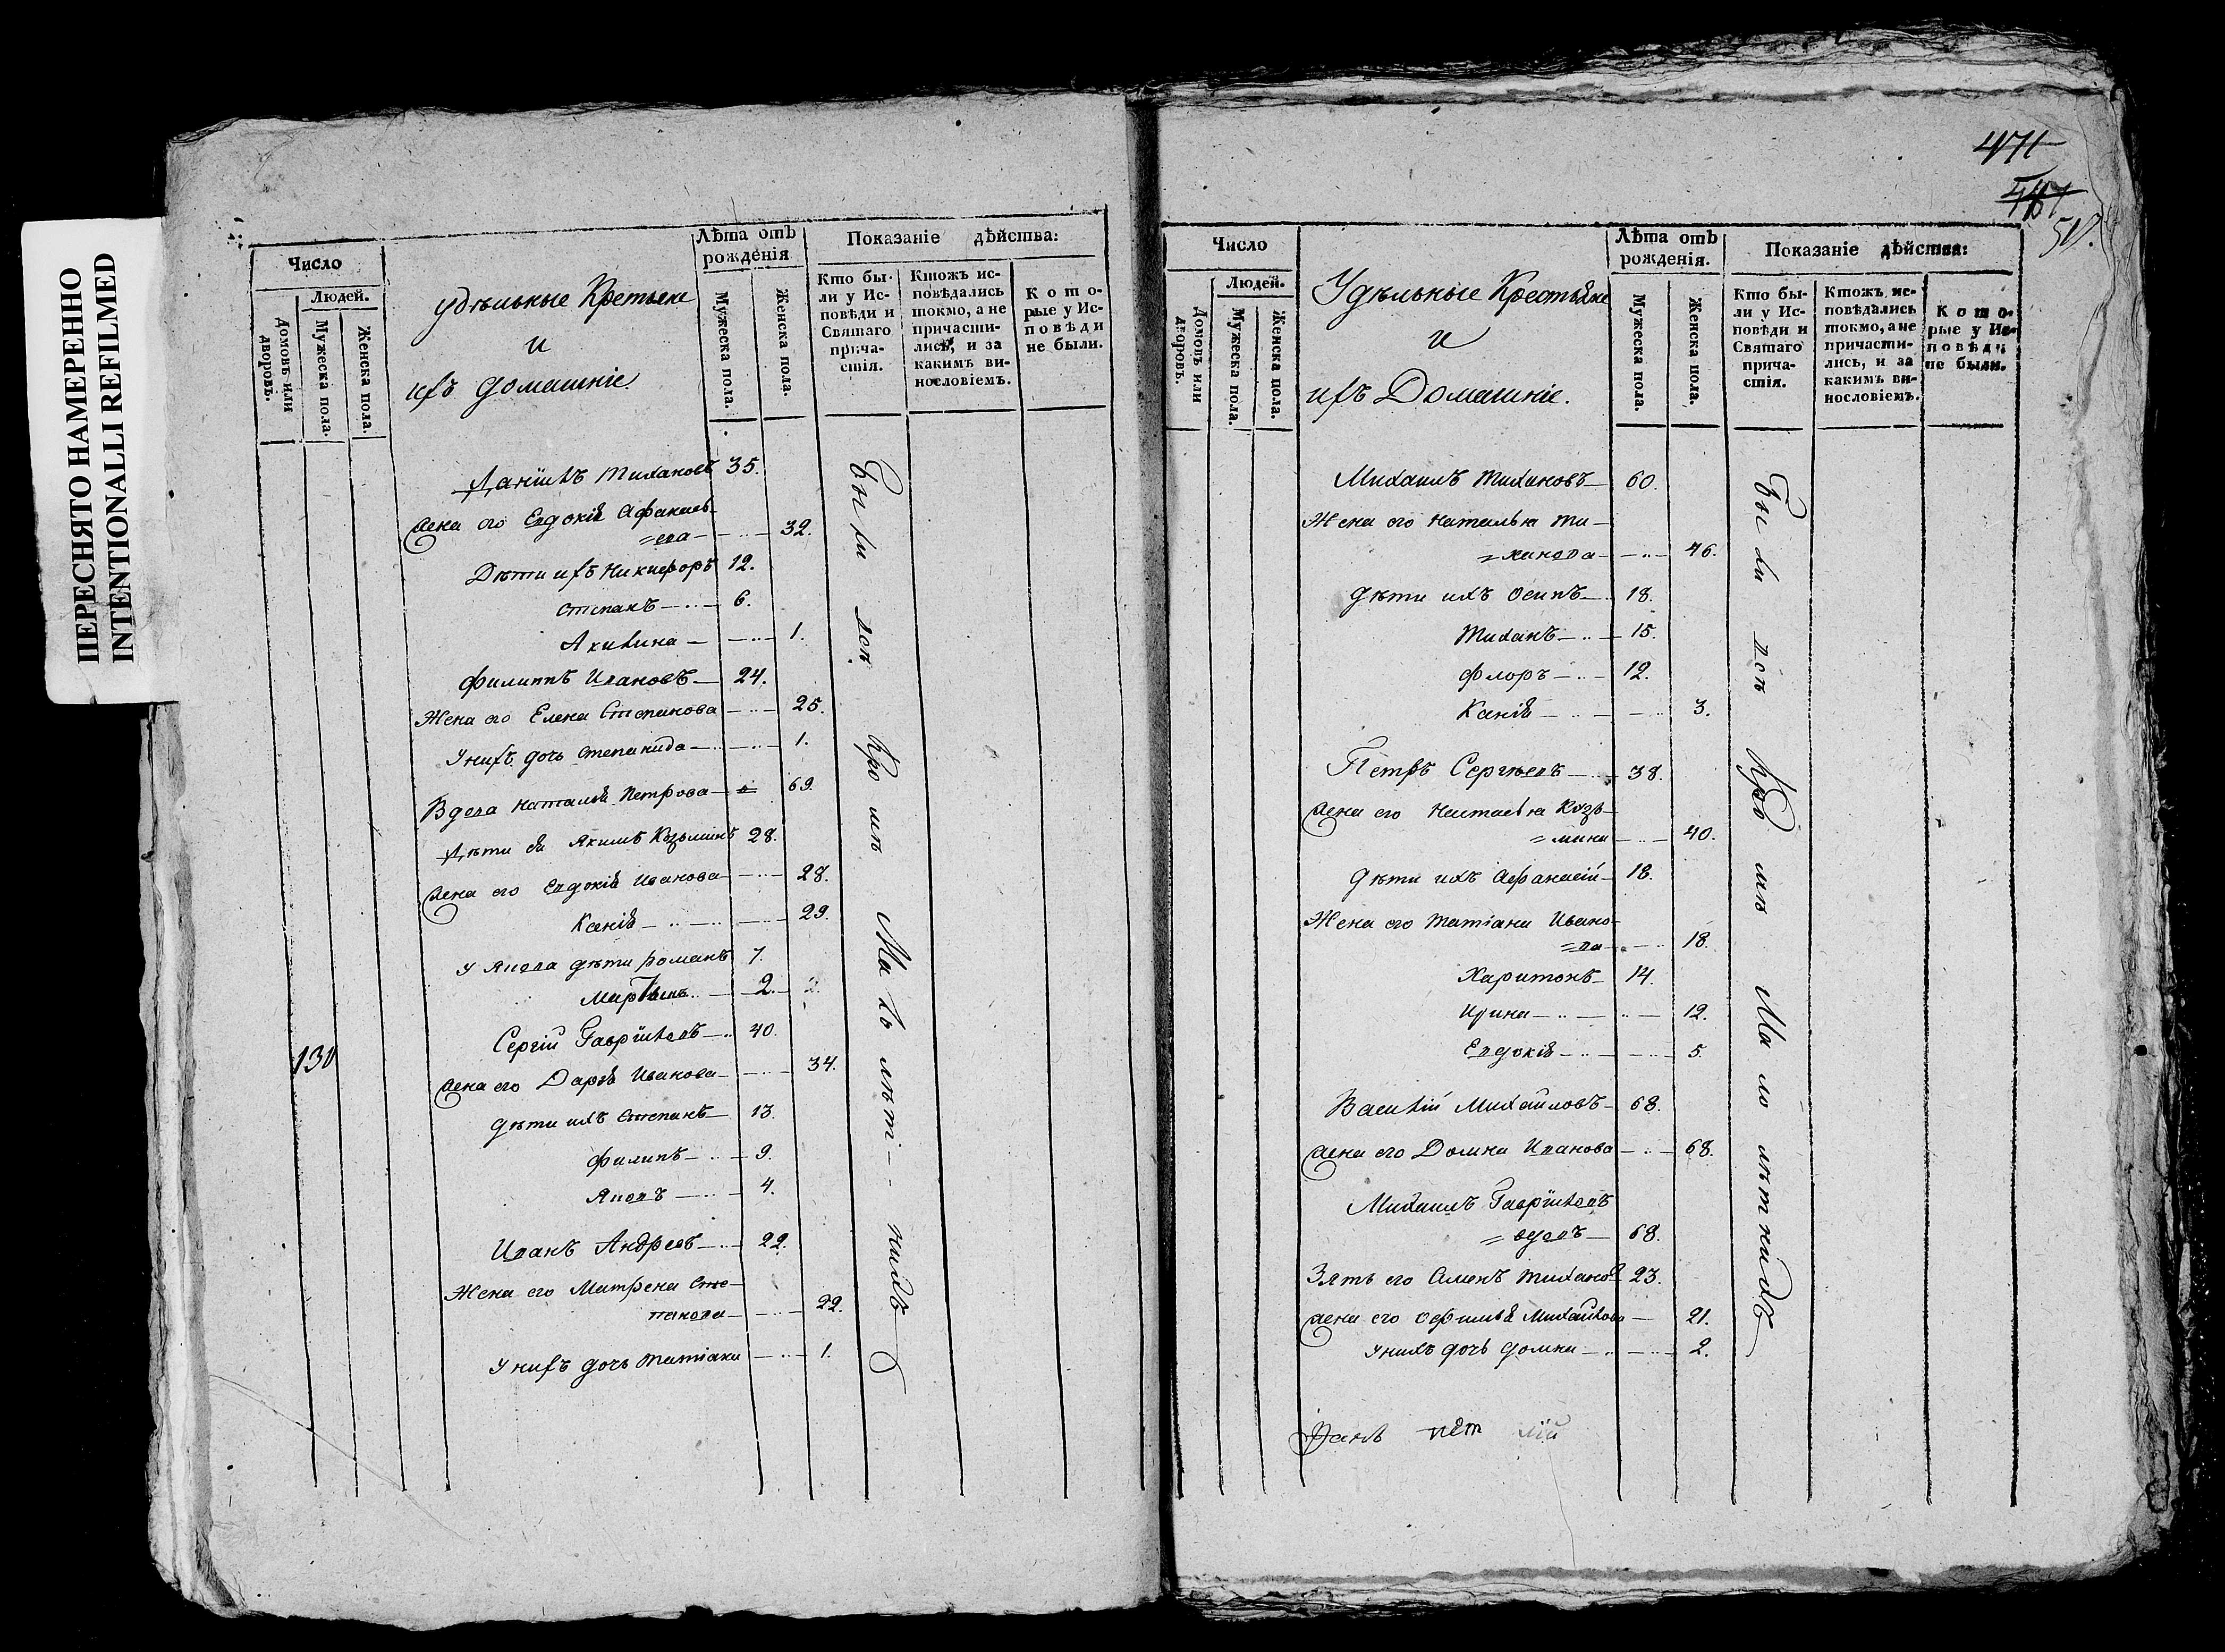 ПЕРЕСНЯТО НАМЕРЕННО
INTENTIONALLI REFILMED
Число
Людей.
Домовъ или дворовъ.
Мужеска пола.
Женска пола.
удѣльные Кретьене
и
ихъ домашніе
Лѣта отъ рожденія
Мужеска пола.
Женска пола.
Показаніе дѣйства:
Кто были у Исповѣди и Святаго причастія.
Ктожъ исповѣдались токмо, а не причастились, и за какимъ винословіемъ.
Которые у Исповѣди не были.
Даніилъ Тихановъ 35.
Жена его Евдокія Афанась-
=ева 32.
Дѣти ихъ Никифоръ 12.
Степанъ 6.
Акилина 1.
Филиппъ Ивановъ 24.
Жена его Елена Степанова 25.
У нихъ дочь Степанида 1.
Вдова Наталья Петрова 69.
Дѣти ея Якимъ Козьминъ 28.
Жена его Евдокія Иванова 28.
Ксенія 29.
У Якова дѣти Романъ 7.
Мартынъ 2. 2.
Сергій Гавриловъ 40.
130
Жена его Дарья Иванова 34.
Дѣти ихъ Степанъ 13.
Филипъ 9.
Яковъ 4.
Иванъ Андреевъ 22.
Жена его Матрена Сте-
панова 22.
У нихъ дочь Татіана 1.
Были всѣ кромѣ Малѣтнихъ
471
50.
Число
Людей.
Домовъ или дворовъ.
Мужеска пола.
Женска пола.
Удѣльные Крестьяне
и
ихъ Домашніе.
Лѣта отъ рожденія.
Мужеска пола.
Женска пола.
Показаніе дѣйства:
Кто были у Исповѣди и Святаго причастія.
Ктожъ исповѣдались токмо, а не причастились, и за какимъ винословіемъ.
Которые у Исповѣди не были.
Михаилъ Тихановъ 60.
Жена его Наталья Ти-
=ханова 46.
дѣти ихъ Осипъ 18.
Тиханъ 15.
Флоръ 12.
Ксенія 3.
Петръ Сергѣевъ 38.
Жена его Настасья Козь-
=мина 40.
Дѣти ихъ Афанасій 18.
Жена его Татіана Ивано-
=ва 18.
Харитонъ 14.
Ирина 12.
Евдокія 5.
Василій Михайловъ 68.
Жена его Домна Иванова 68.
Михаилъ Гавриловъ
=вдовъ 68.
Зять его Семенъ Тиханов 23.
Жена его Офимья Михайлова 21.
У нихъ дочь Домна 2.
Были всѣ кромѣ Малолѣтнихъ